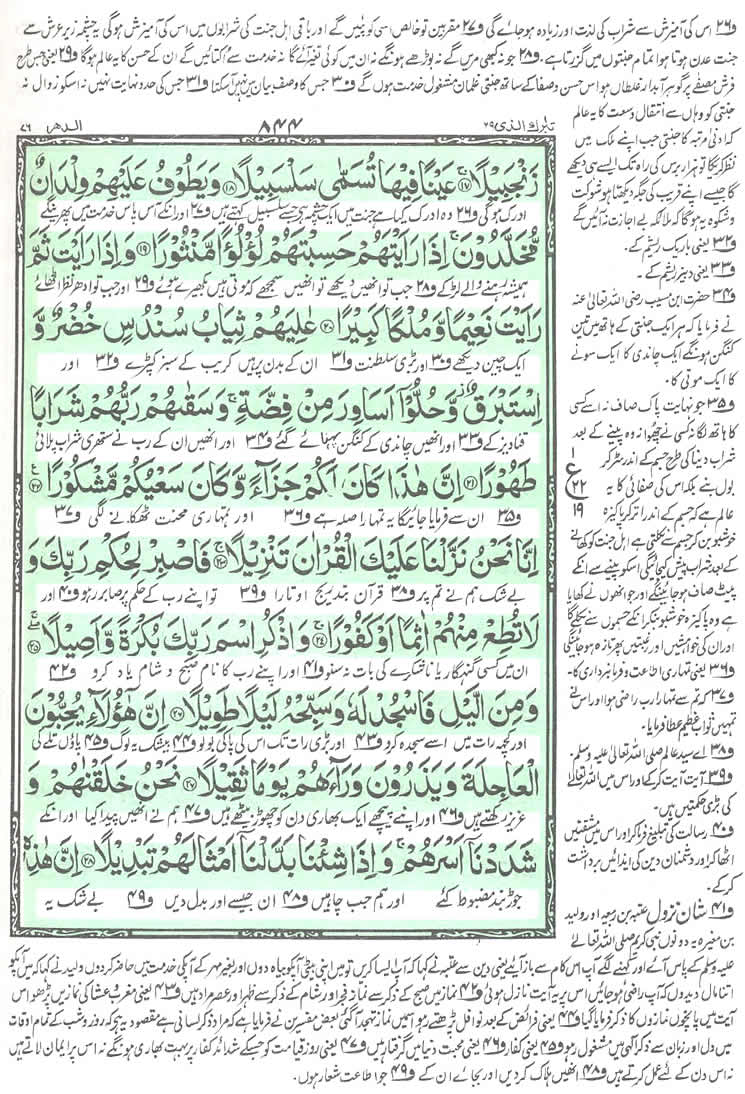 و۲۶ اس کی آمیزش سے شراب کی لذت اور زیادہ ہو جائے گی و۲۷ مقربین تو خالص اسی کو پئیں گے اور باقی اہل جنت کی شرابوں میں اس کی آمیزش ہوگی یہ چشمہ زیر عرش سے
جنت عدن ہوتا ہوا تمام جنتوں میں گزرتا ہے۔ و۲۸ جو نہ کبھی مریں گے نہ بوڑھے ہونگے نہ ان میں کوئی تغیر آئے گا نہ خدمت سے اکتائیں گے ان کے حسن کا یہ عالم ہوگا و۲۹ یعنی جس طرح
فرش مصفّٰے پر گوہر آبدار غلطاں ہو اس حسن و صفا کے ساتھ جنتی غلمان مشغول خدمت ہوں گے و۳۰ جس کا وصف بیان میں نہیں آسکتا و۳۱ جس کی حد و نہایت نہیں نہ اسکو زوال نہ
تبٰرك الذی ۲۹
۸۴۴
الدھر ۷۶
زَنْجَبِيْلًا ۱۷ عَيْنًا فِيْهَا تُسَمّٰى سَلْسَبِيْلًا ۱۸ وَيَطُوْفُ عَلَيْهِمْ وِلْدَانٌ
ادرک ہوگی و۲۶ وہ ادرک کیا ہے جنت میں ایک چشمہ ہے جسے سلسبیل کہتے ہیں و۲۷ اور انکے آس پاس خدمت میں پھرینگے
مُّخَلَّدُوْنَ اِذَا رَاَيْتَهُمْ حَسِبْتَهُمْ لُؤْلُؤًا مَّنْثُوْرًا ۱۹ وَاِذَا رَاَيْتَ ثَمَّ
ہمیشہ رہنے والے لڑکے و۲۸ جب تو انھیں دیکھے تو انھیں سمجھے کہ موتی ہیں بکھیرے ہوئے و۲۹ اور جب تو ادھر نظر اٹھائے
رَاَيْتَ نَعِيْمًا وَّمُلْكًا كَبِيْرًا ۲۰ عٰلِيَهُمْ ثِيَابُ سُنْدُسٍ خُضْرٌ وَّ
ایک چین دیکھے و۳۰ اور بڑی سلطنت و۳۱ ان کے بدن پر ہیں کریب کے سبز کپڑے و۳۲ اور
اِسْتَبْرَقٌ وَّحُلُّوْۤا اَسَاوِرَ مِنْ فِضَّةٍ وَسَقٰىهُمْ رَبُّهُمْ شَرَابًا
قنادیز کے و۳۳ اور انھیں چاندی کے کنگن پہنائے گئے و۳۴ اور انھیں ان کے رب نے ستھری شراب پلائی
طَهُوْرًا ۲۱ اِنَّ هٰذَا كَانَ لَكُمْ جَزَآءً وَّكَانَ سَعْيُكُمْ مَّشْكُوْرًا ۲۲
و۳۵ ان سے فرمایا جائیگا یہ تمہارا صلہ ہے و۳۶ اور تمہاری محنت ٹھکانے لگی و۳۷
اِنَّا نَحْنُ نَزَّلْنَا عَلَيْكَ الْقُرْاٰنَ تَنْزِيْلًا ۲۳ فَاصْبِرْ لِحُكْمِ رَبِّكَ وَ
بے شک ہم نے تم پر و۳۸ قرآن بتدریج اوتارا و۳۹ تو اپنے رب کے حکم پر صابر رہو و۴۰ اور
لَا تُطِعْ مِنْهُمْ اٰثِمًا اَوْ كَفُوْرًا ۲۴ وَاذْكُرِ اسْمَ رَبِّكَ بُكْرَةً وَّاَصِيْلًا ۲۵
ان میں کسی گنہگار یا ناشکرے کی بات نہ سنو و۴۱ اور اپنے رب کا نام صبح و شام یاد کرو و۴۲
وَمِنَ الَّيْلِ فَاسْجُدْ لَهٗ وَسَبِّحْهُ لَيْلًا طَوِيْلًا ۲۶ اِنَّ هٰۤؤُلَآءِ يُحِبُّوْنَ
اور کچھ رات میں اسے سجدہ کرو و۴۳ اور بڑی رات تک اس کی پاکی بولو و۴۴ بیشک یہ لوگ و۴۵ پاؤں تلے کی
الْعَاجِلَةَ وَيَذَرُوْنَ وَرَآءَهُمْ يَوْمًا ثَقِيْلًا ۲۷ نَحْنُ خَلَقْنٰهُمْ وَ
عزیز رکھتے ہیں و۴۶ اور اپنے پیچھے ایک بھاری دن کو چھوڑ بیٹھے ہیں و۴۷ ہم نے انھیں پیدا کیا اور انکے
شَدَدْنَاۤ اَسْرَهُمْ وَاِذَا شِئْنَا بَدَّلْنَاۤ اَمْثَالَهُمْ تَبْدِيْلًا ۲۸ اِنَّ هٰذِهٖ
جوڑ بند مضبوط کئے اور ہم جب چاہیں و۴۸ ان جیسے اور بدل دیں و۴۹ بے شک یہ
جنتی کو وہاں سے انتقال وسعت کا یہ عالم
کہ ادنیٰ مرتبہ کا جنتی جب اپنے ملک میں
نظر کریگا تو ہزار برس کی راہ تک ایسے ہی دیکھے
گا جیسے اپنے قریب کی جگہ دیکھتا ہو شوکت
و شکوہ یہ ہوگا کہ ملائکہ بے اجازت نہ آئیں گے
و۳۲ یعنی باریک ریشم کے۔
و۳۳ یعنی دبیز ریشم کے۔
و۳۴ حضرت ابن مسیب رضی اللہ تعالیٰ عنہ
نے فرمایا کہ ہر ایک جنتی کے ہاتھ میں تین
کنگن ہونگے ایک چاندی کا ایک سونے
کا ایک موتی کا۔
و۳۵ جو نہایت پاک صاف نہ اسے کسی
کا ہاتھ لگا نہ کسی نے چھوا نہ وہ پینے کے بعد
شراب دنیا کی طرح جسم کے اندر سڑ کر
بول بنے بلکہ اس کی صفائی کا یہ
عالم ہے کہ جسم کے اندر اتر کر پاکیزہ
خوشبو بن کر جسم سے نکلتی ہے اہل جنت کو کھانے
کے بعد شراب پیش کی جائیگی اسکو پینے سے انکے
پیٹ صاف ہو جائینگے اور جو انھوں نے کھایا
ہے وہ پاکیزہ خوشبو بنکر انکے جسموں سے نکلے گا
اور ان کی خواہشیں اور رغبتیں پھر تازہ ہو جائینگی
و۳۶ یعنی تمہاری اطاعت و فرمانبرداری کا۔
و۳۷ کہ تم سے تمہارا رب راضی ہوا اور اس نے
تمہیں ثواب عظیم عطا فرمایا۔
و۳۸ اے سید عالم صلی اللہ تعالیٰ علیہ وسلم۔
و۳۹ آیت آیت کرکے اور اس میں اللہ تعالیٰ
کی بڑی حکمتیں ہیں۔
و۴۰ رسالت کی تبلیغ فرما کر اور اس میں مشقتیں
اٹھا کر اور دشمنان دین کی ایذائیں برداشت
کرکے۔
و۴۱ شان نزول عتبہ بن ربیعہ اور ولید
بن مغیرہ یہ دونوں نبی کریم صلی اللہ تعالیٰ
علیہ وسلم کے پاس آئے اور کہنے لگے آپ اس کام سے باز آئیے یعنی دین سے عتبہ نے کہا کہ آپ ایسا کریں تو میں اپنی بیٹی آپکو بیاہ دوں اور بغیر مہر کے آپکی خدمت میں حاضر کردوں ولید نے کہا کہ میں آپکو
اتنا مال دیدوں کہ آپ راضی ہو جائیں اس پر یہ آیت نازل ہوئی و۴۲ نماز میں صبح کے ذکر سے نماز فجر اور شام کے ذکر سے ظہر اور عصر مراد ہیں و۴۳ یعنی مغرب و عشا کی نمازیں پڑھو اس
آیت میں پانچوں نمازوں کا ذکر فرمایا گیا و۴۴ یعنی فرائض کے بعد نوافل پڑھتے رہو اسمیں نماز تہجد آگئی بعض مفسرین نے فرمایا ہے کہ مراد ذکر لسانی ہے مقصود یہ ہے کہ روز و شب کے تمام اوقات
میں دل اور زبان سے ذکر الٰہی میں مشغول رہو و۴۵ یعنی کفار و۴۶ یعنی محبت دنیا میں گرفتار ہیں و۴۷ یعنی روز قیامت کو جسکے شدائد کفار پر بہت بھاری ہونگے نہ اس پر ایمان لاتے ہیں
نہ اس دن کے لئے عمل کرتے ہیں و۴۸ انھیں ہلاک کردیں اور بجائے ان کے و۴۹ جو اطاعت شعار ہوں۔